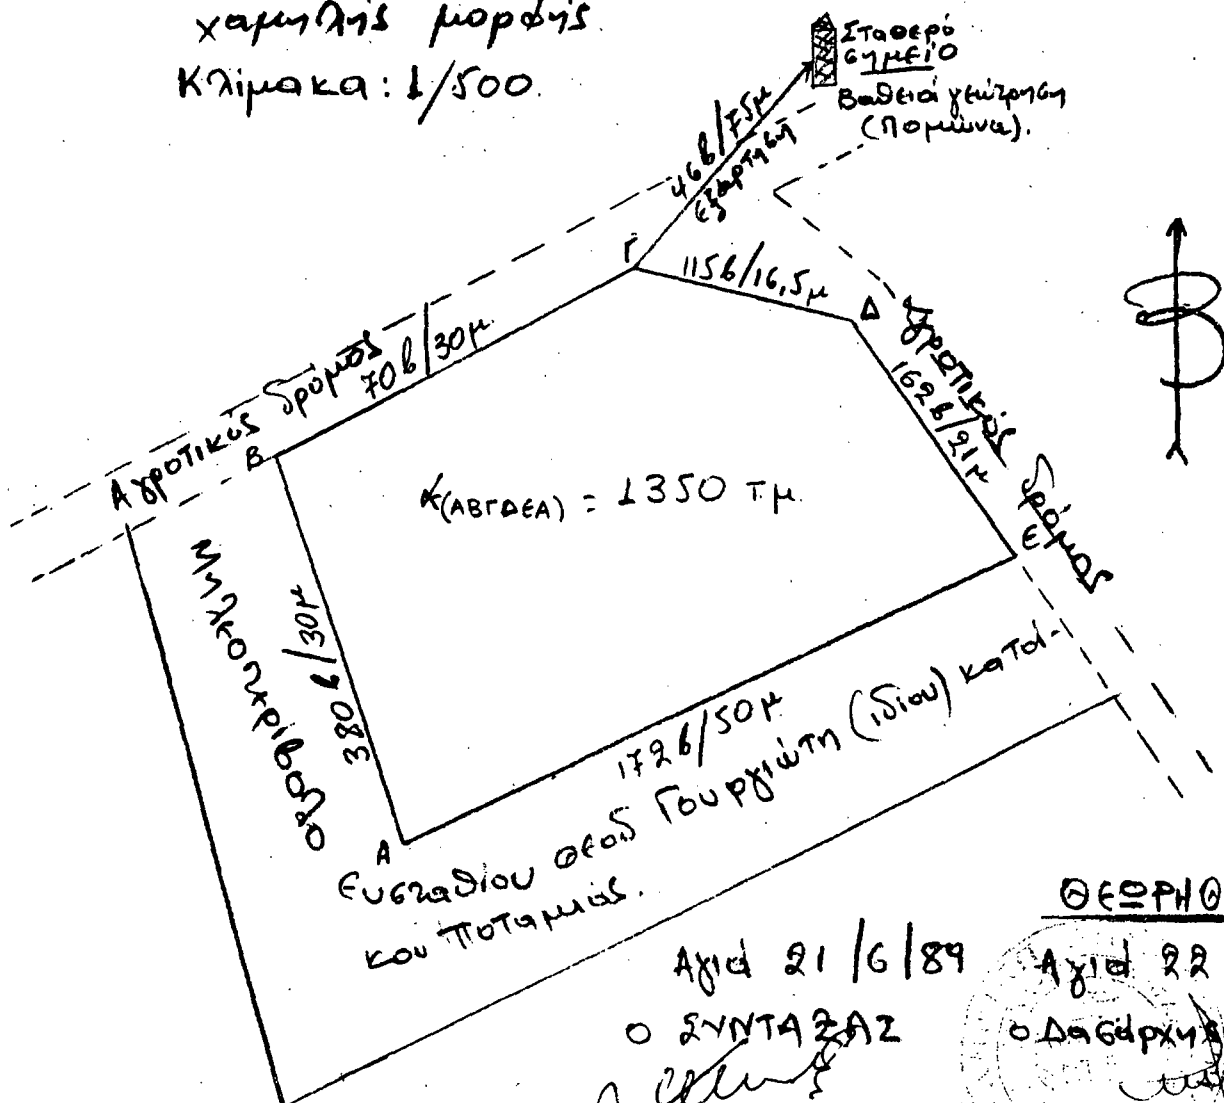 χαμηλής μορφής.
Κλίμακα: 1/500.
Σταθερό
σημείο
Βαθειά γεώτρηση
(Πομώνα).
46β/75μ
εξάρτηση
Γ
115β/16,5μ
Δ
Αγροτικός δρόμος
70β/30μ.
Αγροτικός δρόμος
162β/21μ
Β
Ε(ΑΒΓΔΕΑ) = 1350 τ.μ.
Ε
Μηλεοπερίβολο
380β/30μ
172β/50μ
Α
Ευσταθίου Θεοδ Γουργιώτη (ιδίου) κατοί-
κου Ποταμιάς.
ΘΕΩΡΗΘ
Αγιά 21/6/89
Αγιά 22
Ο ΣΥΝΤΑΞΑΣ
ο Δασάρχης